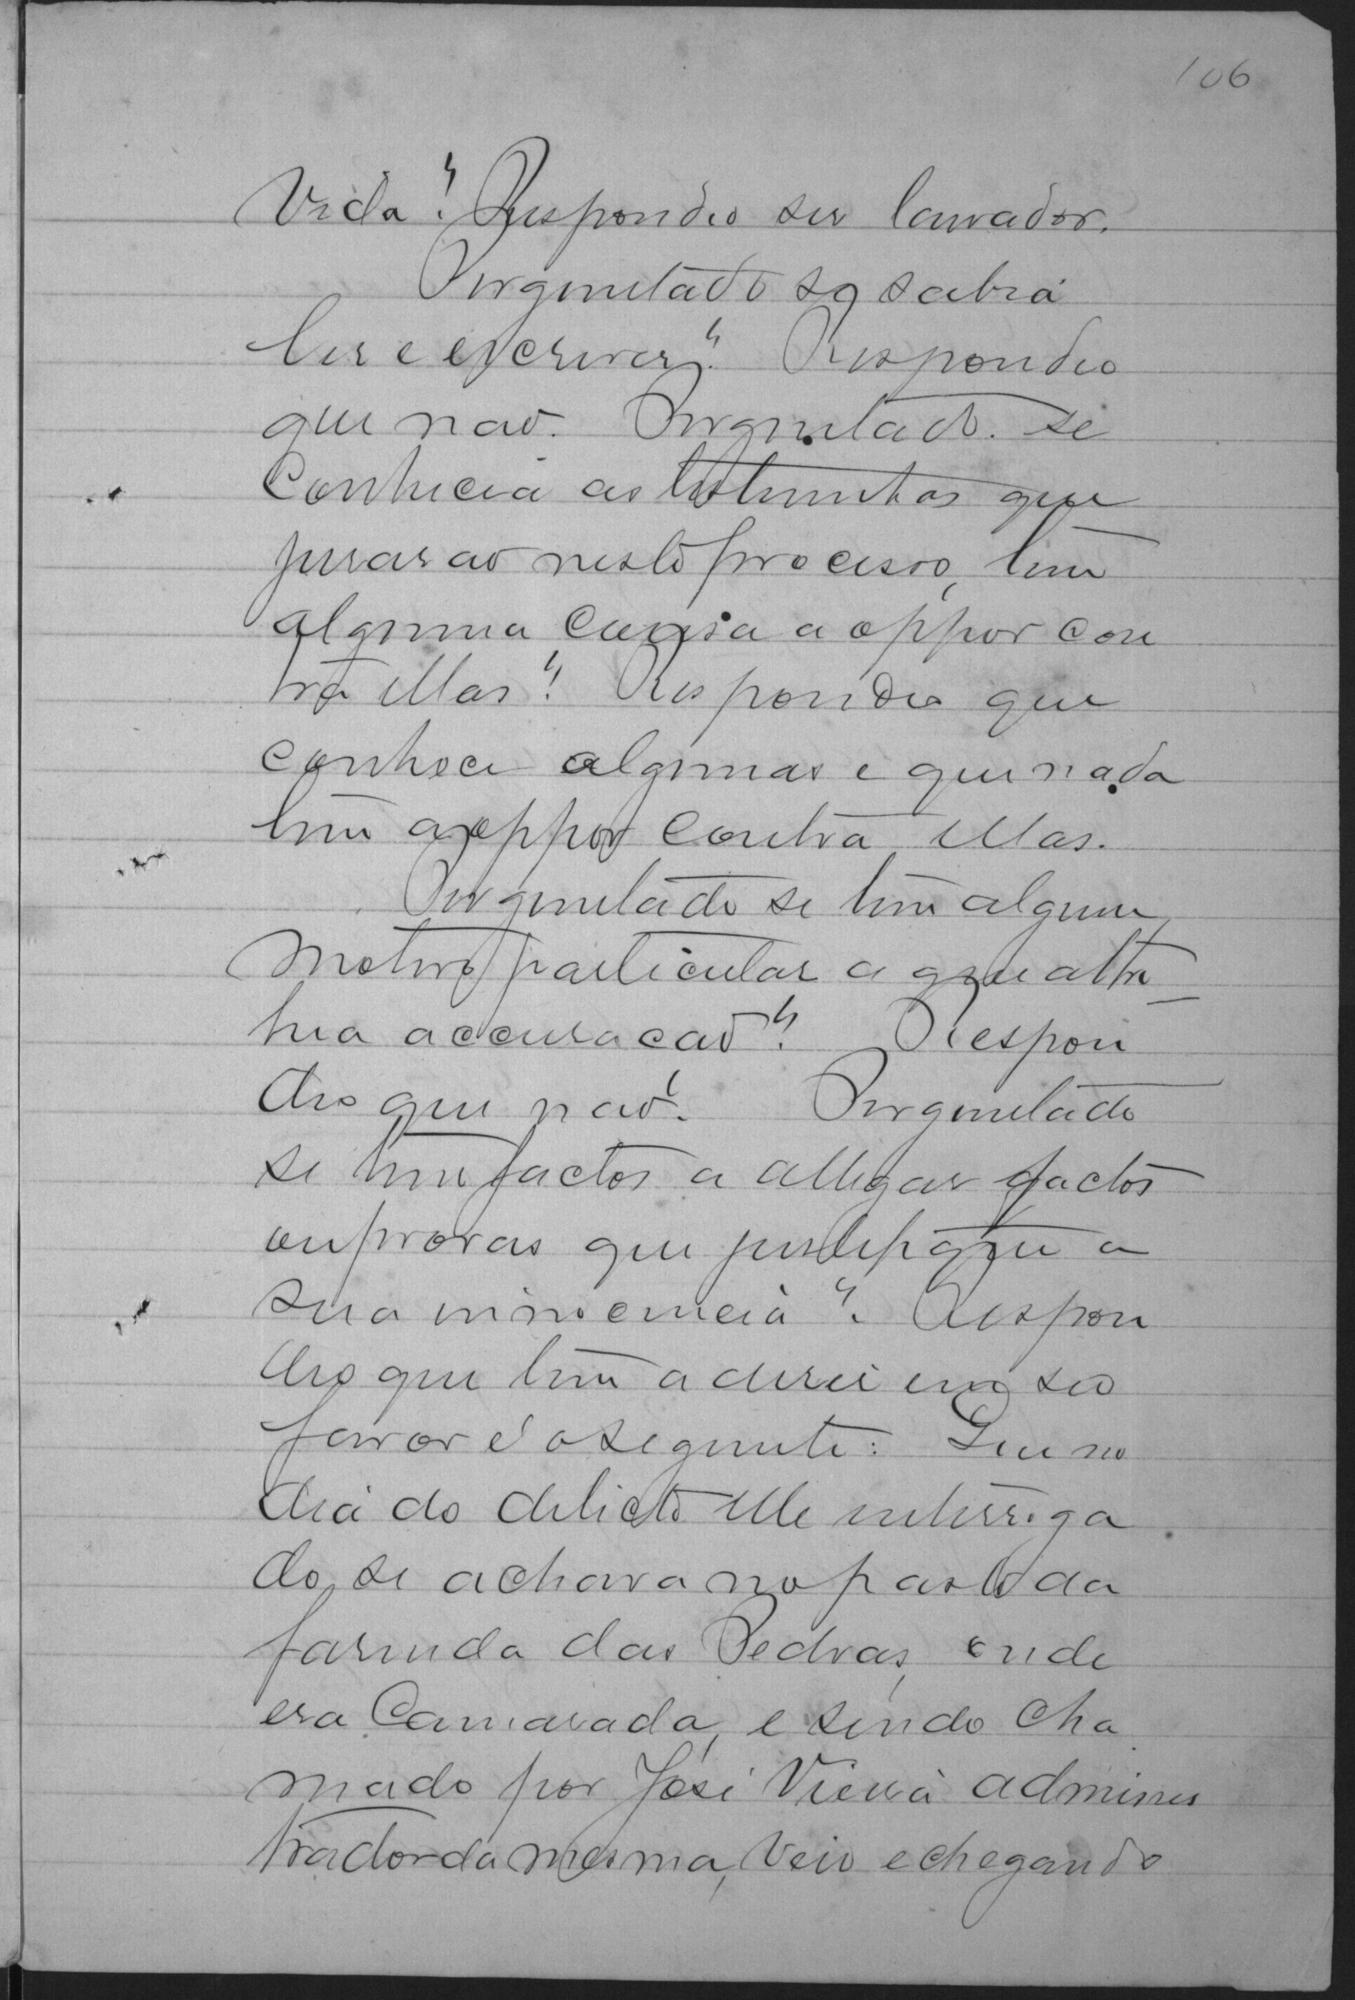 106
Vida? Respondeo ser lavrador.
Perguntado se sabia
ler e escrever? Respondeo
que não. Perguntado se
Conhecia as testimunhas que
jurarão neste processo, tem
alguma Cousa a oppor con
tra ellas? Respondeo que
conhece algumas e que nada
tem a oppor Contra ellas.
Perguntado se tem algum
motivo particular a que attri
bua accusacão? Respon
deo que não. Perguntado
se tem factos a allegar factos
ou provas que justifique a
sua innocencia? Respon
deo que tem a diser em seo
favor é o seguinte: Que no
dia do delicto elle interroga
do se achava no pasto da
fazenda das Pedras, onde
era Camarada, e sendo Cha
mado por José Vieira adminis
trador da mesma, veio e chegando